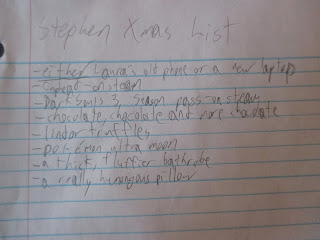 Stephen Xmas List
- either Laura's old phone or a new laptop
- Cuphead - on steam
- Dark Souls 3 season pass - on steam
- chocolate, chocolate and more chocolate
- lindor truffles
- pokemon ultra moon
- a thick, fluffier bathrobe
- a really humongous pillow